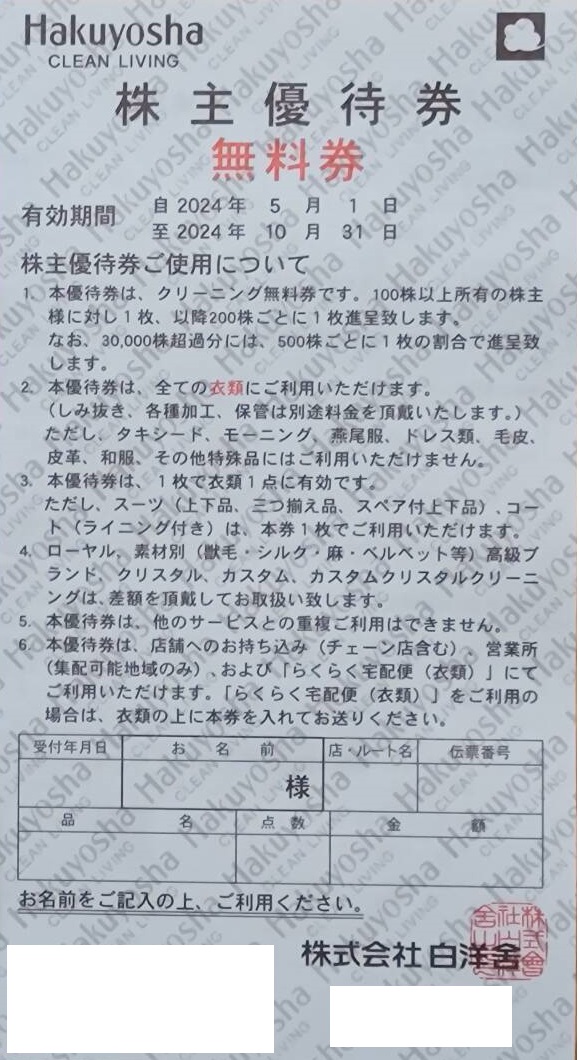 Hakuyosha
CLEAN LIVING
株主優待券
無料券
有効期間
自 2024年 5 月 1 日
至 2024年 10 月 31 日
株主優待券ご使用について
1. 本優待券は、クリーニング無料券です。100株以上所有の株主
様に対し1枚、以降200株ごとに1枚進呈致します。
なお、30,000株超過分には、500株ごとに1枚の割合で進呈致
します。
2. 本優待券は、全ての衣類にご利用いただけます。
（しみ抜き、各種加工、保管は別途料金を頂戴いたします。）
ただし、タキシード、モーニング、燕尾服、ドレス類、毛皮、
皮革、和服、その他特殊品にはご利用いただけません。
3. 本優待券は、1枚で衣類1点に有効です。
ただし、スーツ（上下品、三つ揃え品、スペア付上下品）、コー
ト（ライニング付き）は、本券1枚でご利用いただけます。
4. ローヤル、素材別（獣毛・シルク・麻・ベルベット等）高級ブ
ランド、クリスタル、カスタム、カスタムクリスタルクリーニ
ングは、差額を頂戴してお取扱い致します。
5. 本優待券は、他のサービスとの重複ご利用はできません。
6. 本優待券は、店舗へのお持ち込み（チェーン店含む）、営業所
（集配可能地域のみ）、および「らくらく宅配便（衣類）」にて
ご利用いただけます。「らくらく宅配便（衣類）」をご利用の
場合は、衣類の上に本券を入れてお送りください。
受付年月日 お名前 店・ルート名 伝票番号
様
品名 点数 金額
お名前をご記入の上、ご利用ください。
株式会社 白洋舍